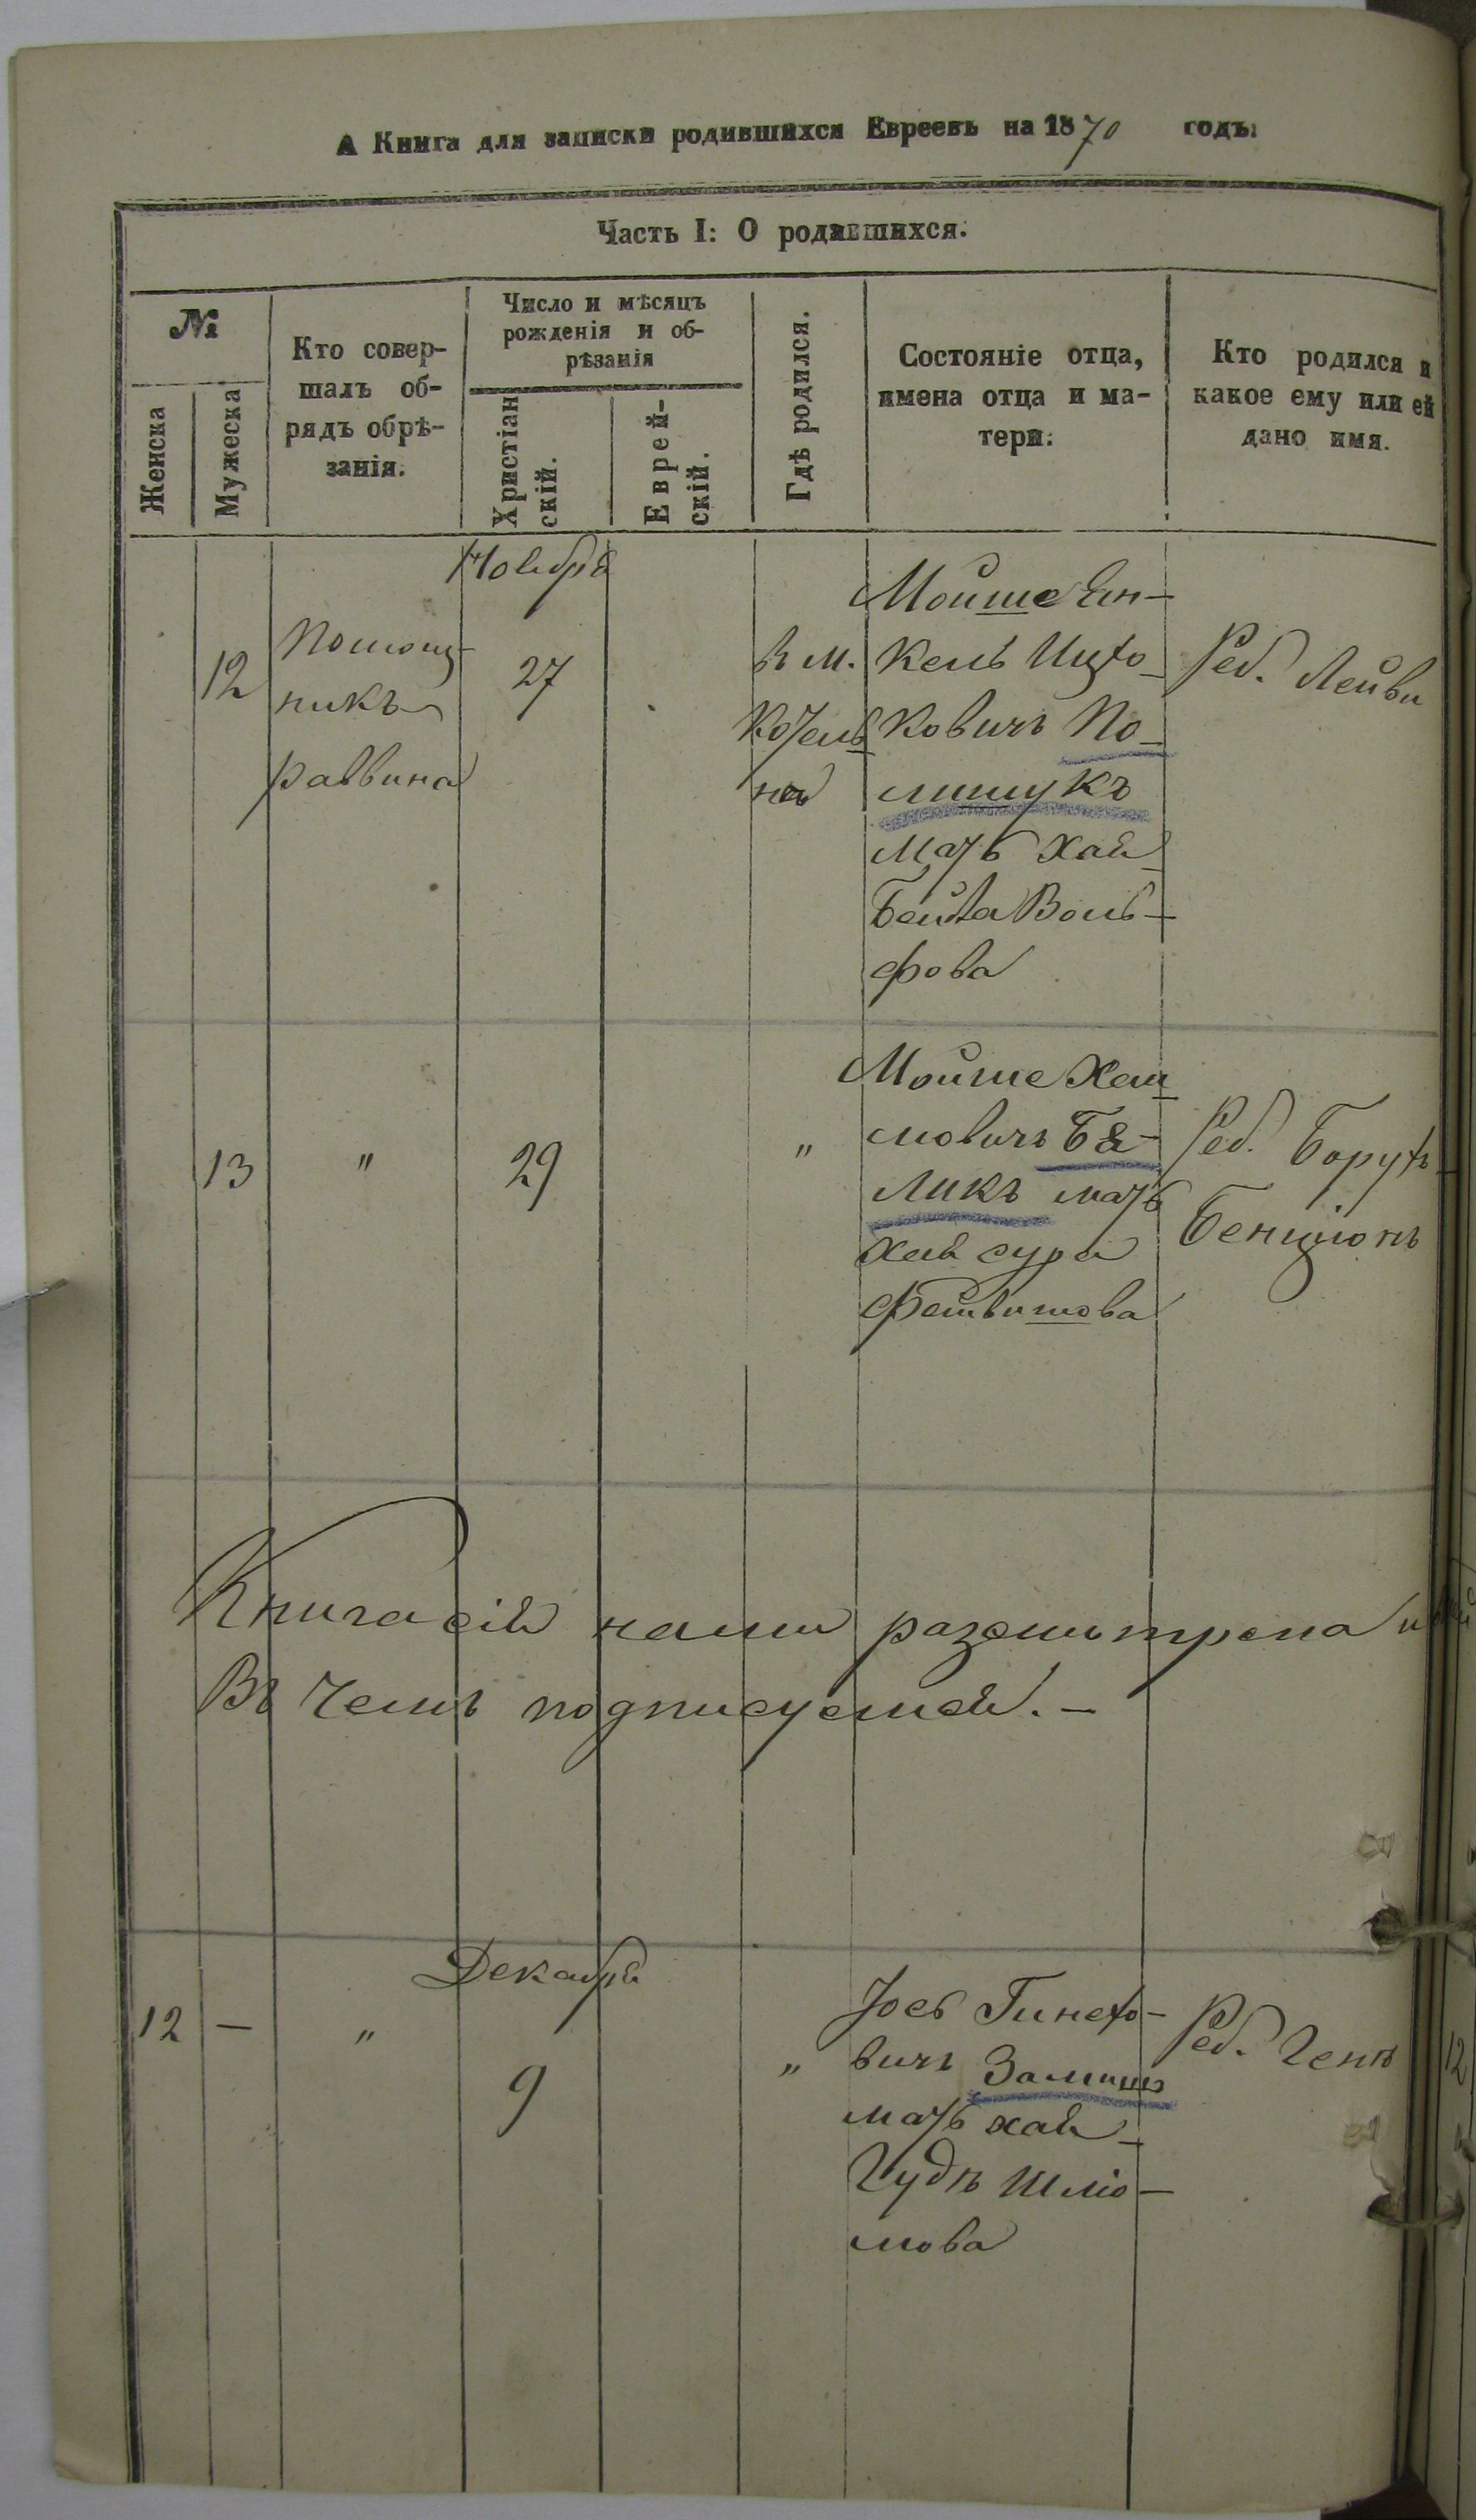 А Книга для записки родившихся Евреевъ на 1870 годъ.
Часть I: О родившихся.
№
Женска
Мужеска
Кто совер-
шалъ об-
рядъ обрѣ-
занія.
Число и мѣсяцъ
рожденія и об-
рѣзанія
Христіан
скій.
Еврей-
скій.
Гдѣ родился.
Состояніе отца,
имена отца и ма-
тери.
Кто родился и
какое ему или ей
дано имя.
Ноября
12
Помощ-
никъ
раввина
27
В м.
Котель
на
Мойше Ян-
кель Ицко-
ковичъ По-
лищукъ
мать Хая
Бейла Воль-
фова
Реб. Лейви
13
"
29
"
Мойше Хаи
мовичъ Бя-
ликъ мать
Хая сура
Фейвишова
Реб. Борухъ-
Бенціонъ
Книга сія нами разсмотрена
Въ чемъ подписуемся. -
Декабря
12
-
"
9
"
Іось
вичъ
мать хая-
Гудя Шліо-
мова
Реб. Геня
12